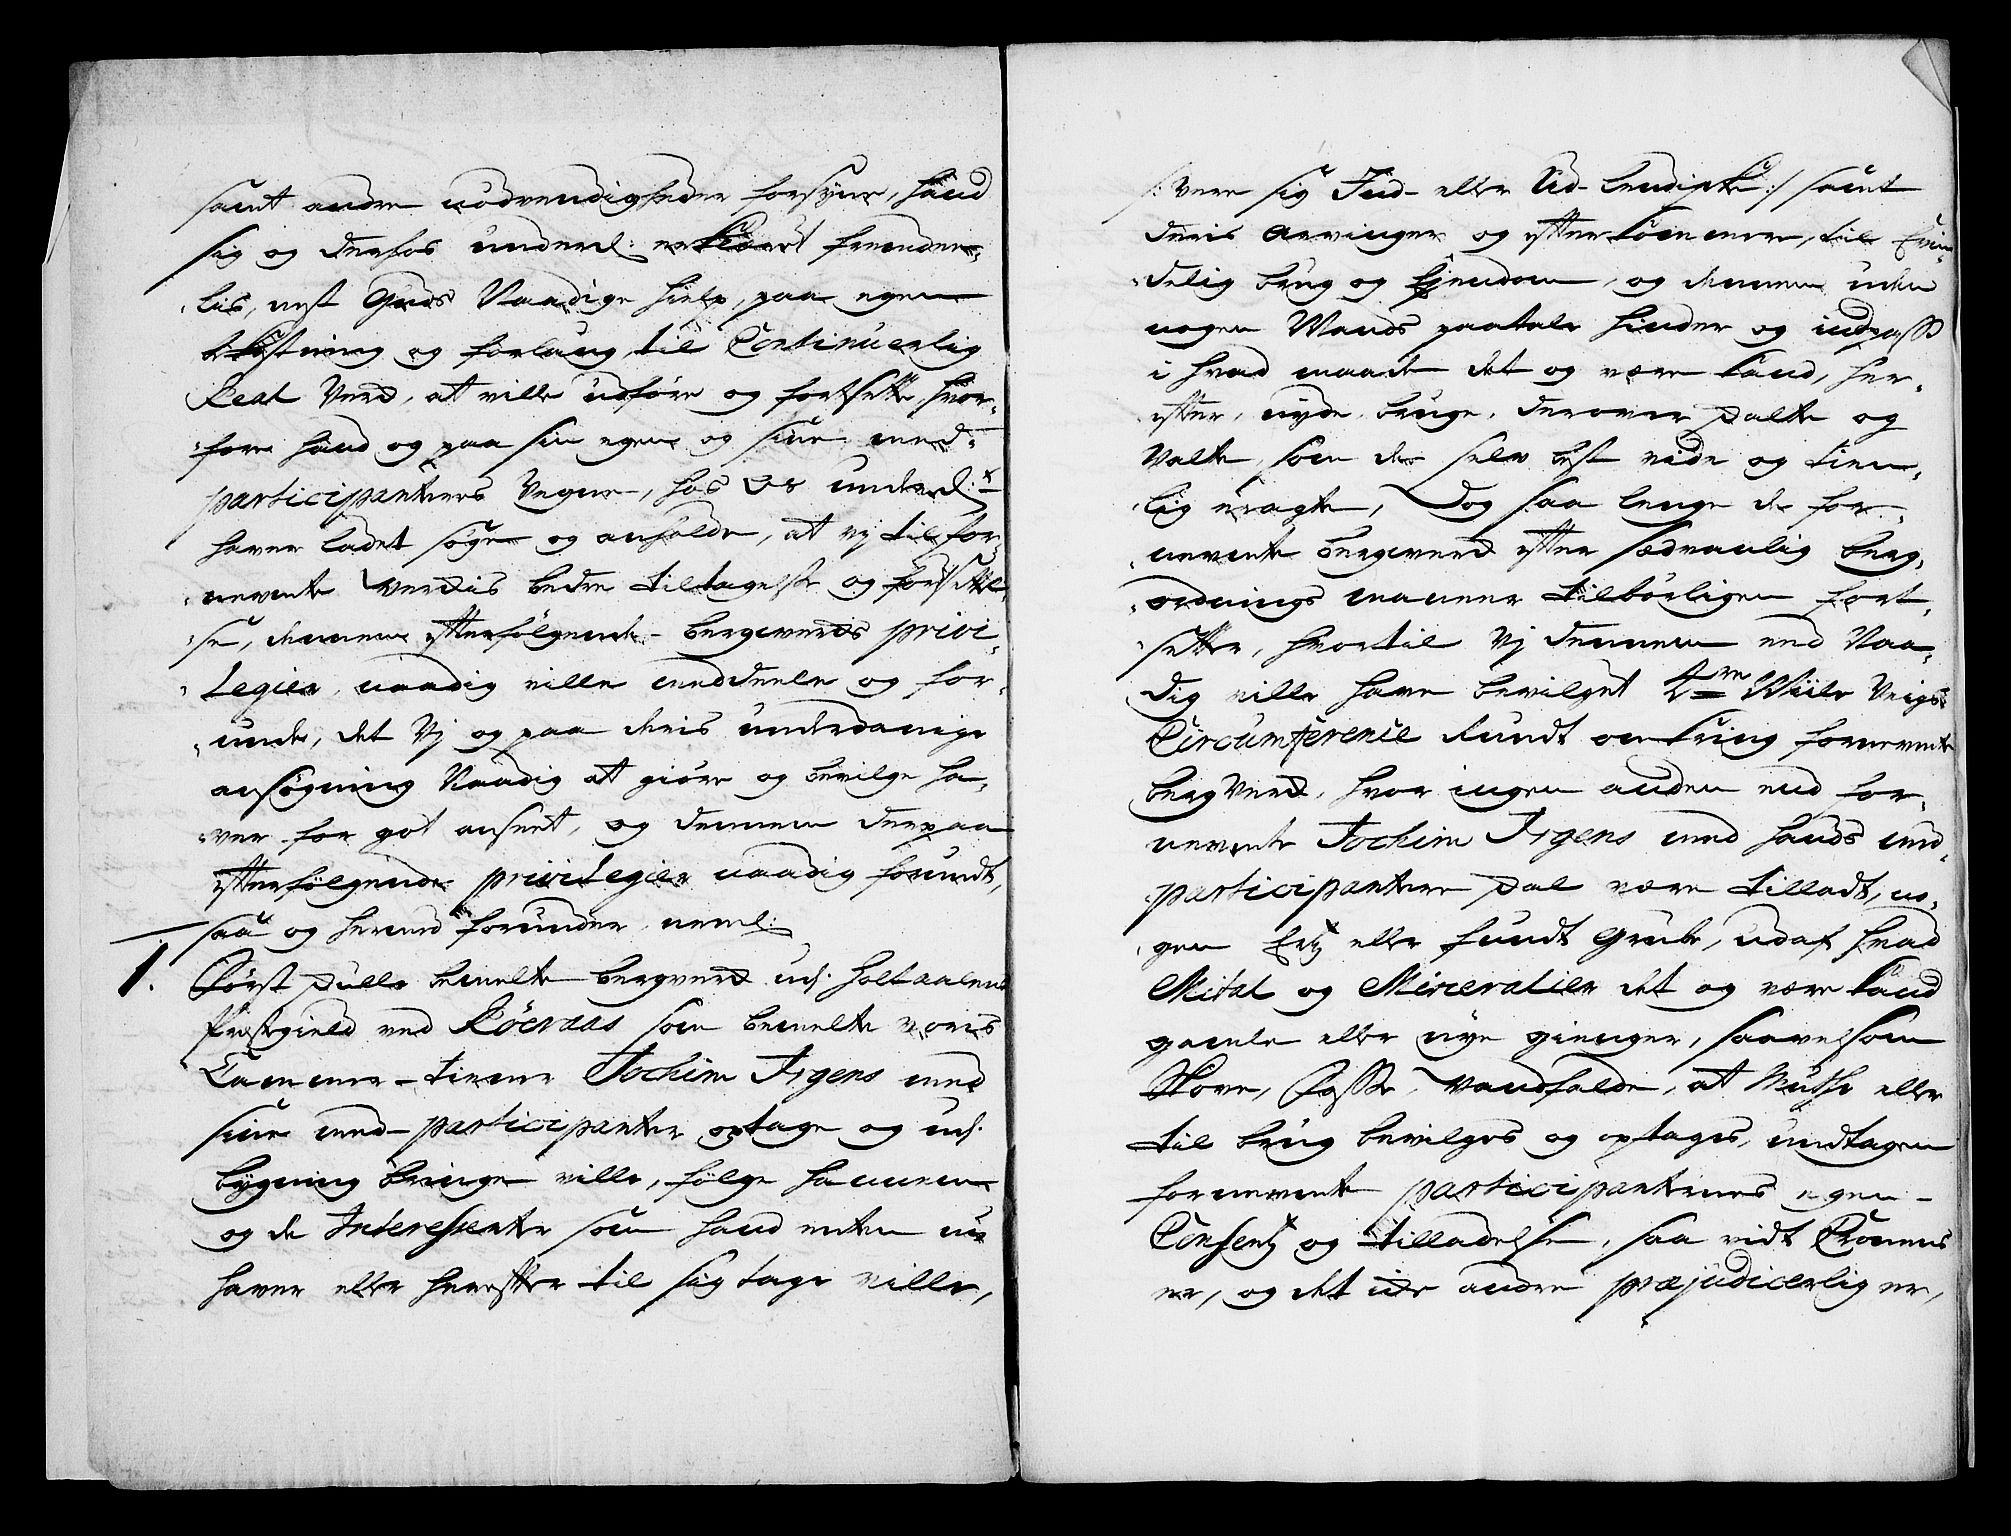 samt andre nødvendigheder forsyne, haud
sig og derhos underd: erklæret fremdee„
„lis, nest Guds Naadige hielp, paa egen
bekostning og forlaug til Continuerlig
Real Verck, at ville udføre og fortsette, hvor„
„fore haud og paa sin egen og sine med„
participanters Vegne, hos Os underd:st
haver ladet søge og anholde, at vj til for„
„nevente Verckis bedre tiltagelse og fortsettel„
„se, dennem efterfølgende bergwercks privi„
„legier, naadig ville meddeele og for„
„unde, det Vj og paa deris underdanige
ansøgning Naadig at giøre og bevilge ha„
„ver for got anseet, og dennem derpaa
efterfølgende privilegier naadig forundt,
saa og hermed forunder, neml:
1. Først skulle bemelte bergverck udj Holtaalens
Prestegield ved Röeraas som bemelte voris
Cammer-tiener Jochim Irgens med
sine med-participanter optage og udj
bygning bringe ville, følge hannem
og de Interessenter som haud enten nu
haver eller herefter til sig tage ville,
/: Vere sig Ind- eller Ud-lendiske :/ samt
deris arvinger og efterkommere, til Evin„
„delig brug og Ejendom, og dennem uden
nogen Mands paatale hinder og indpass
i hvad maade det og være kand, her„
„efter, nyde, bruge, derover skalte og
Valte, som de selv best vide og tien„
„lig eragte, Dog saa lenge de for„
„nevente bergwerck efter sædvanlig berg„
„ordnings maneer tilbörligen fort„
„sette, hvortil Vj dennem med Naa„
dig ville have bevilget 4re Miile Veigs
Circumference Rundt omkring fornevente
bergVerck, hvor ingen anden end for„
nevente Jochim Irgens med hands med„
„participantere skal være tilladt, no„
„gen Ertz eller fundt Grube, udaf hvad
Metal og Mineralier det og være kand
gamle eller nye gienger, saavelsom
Skove, Fosse, Vandfalde, at Muthe eller
til brug bevilges og optages, undtagen
fornevente participanternes egen
Consentz og tilladelse, saa vidt Cronens
er, og det icke andre præjudicerlig er,